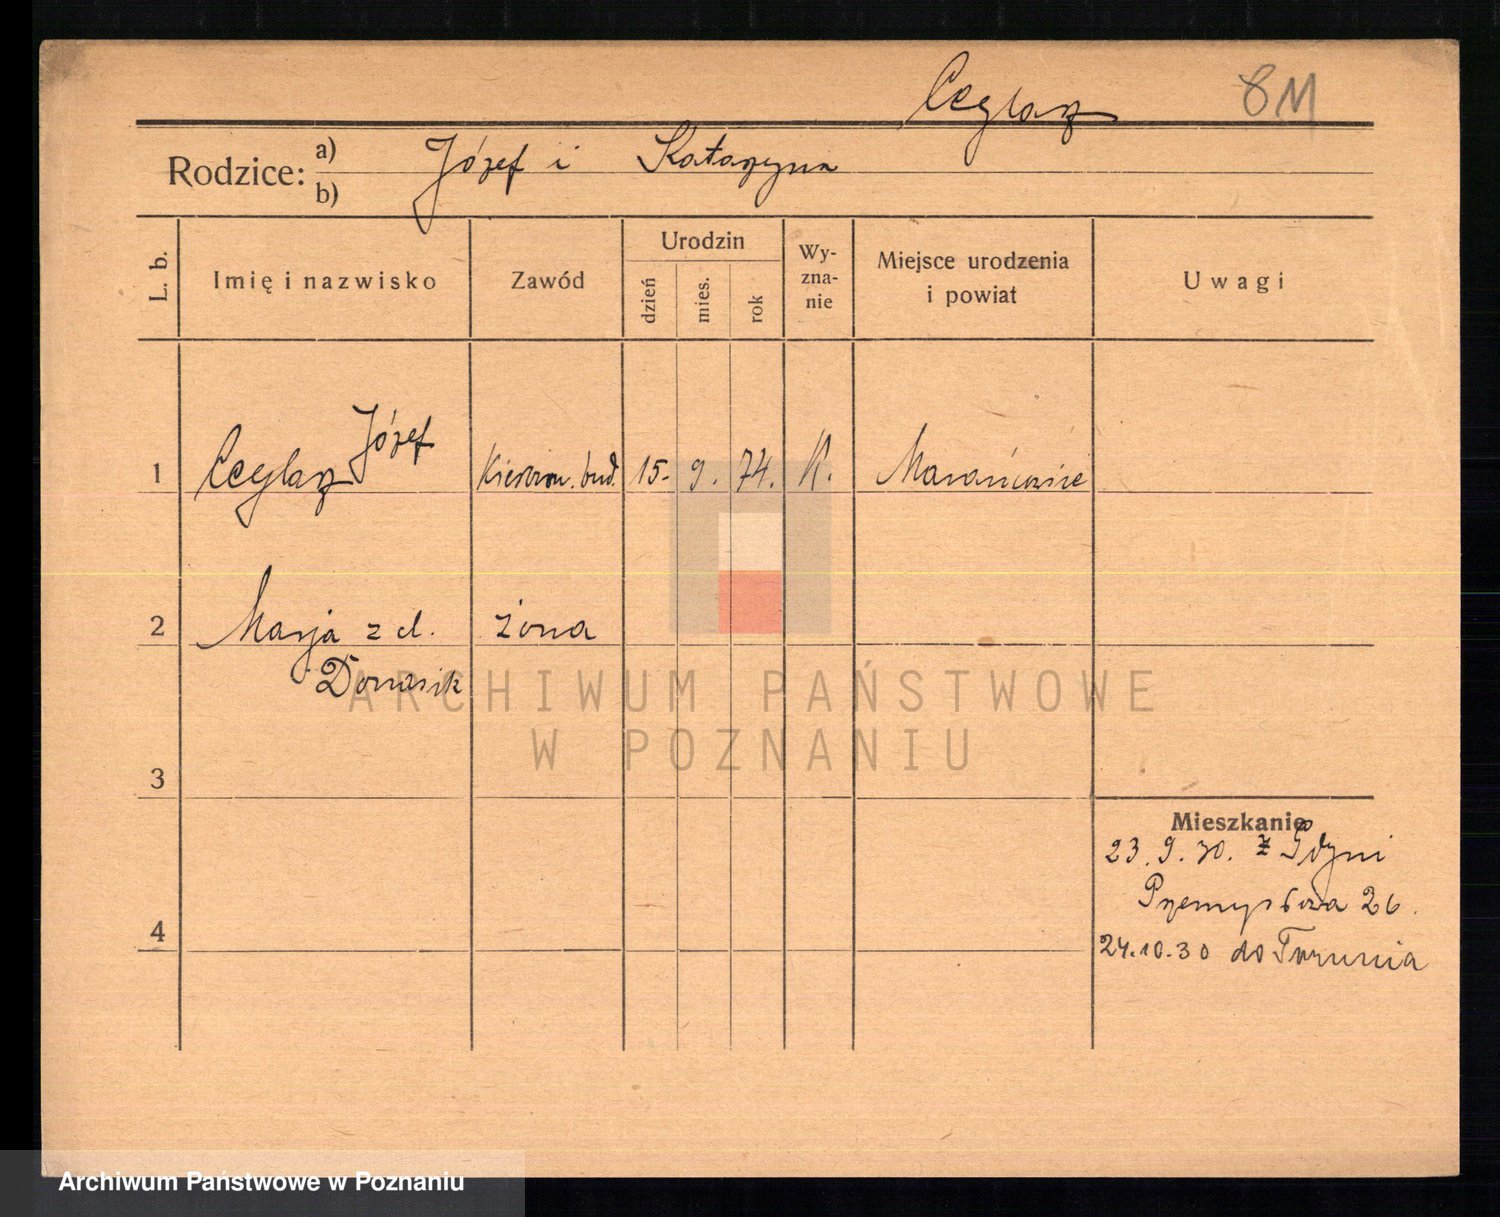 Ceglarz 8M
Rodzice: a) Józef i Katarzyna
b)
L. b.
Imię i nazwisko
Zawód
Urodzin
dzień
mies.
rok
Wy-
zna-
nie
Miejsce urodzenia
i powiat
Uwagi
1 Ceglarz Józef Kierown. bud. 15. 9. 74. K.
2 Marja z d. żona
ARCHIWUM PAŃSTWOWE
W POZNANIU
3
Mieszkanie
23.9.30. z Gdyni
Przemysłowa 26.
4
24.10.30 do Torunia
Archiwum Państwowe w Poznaniu